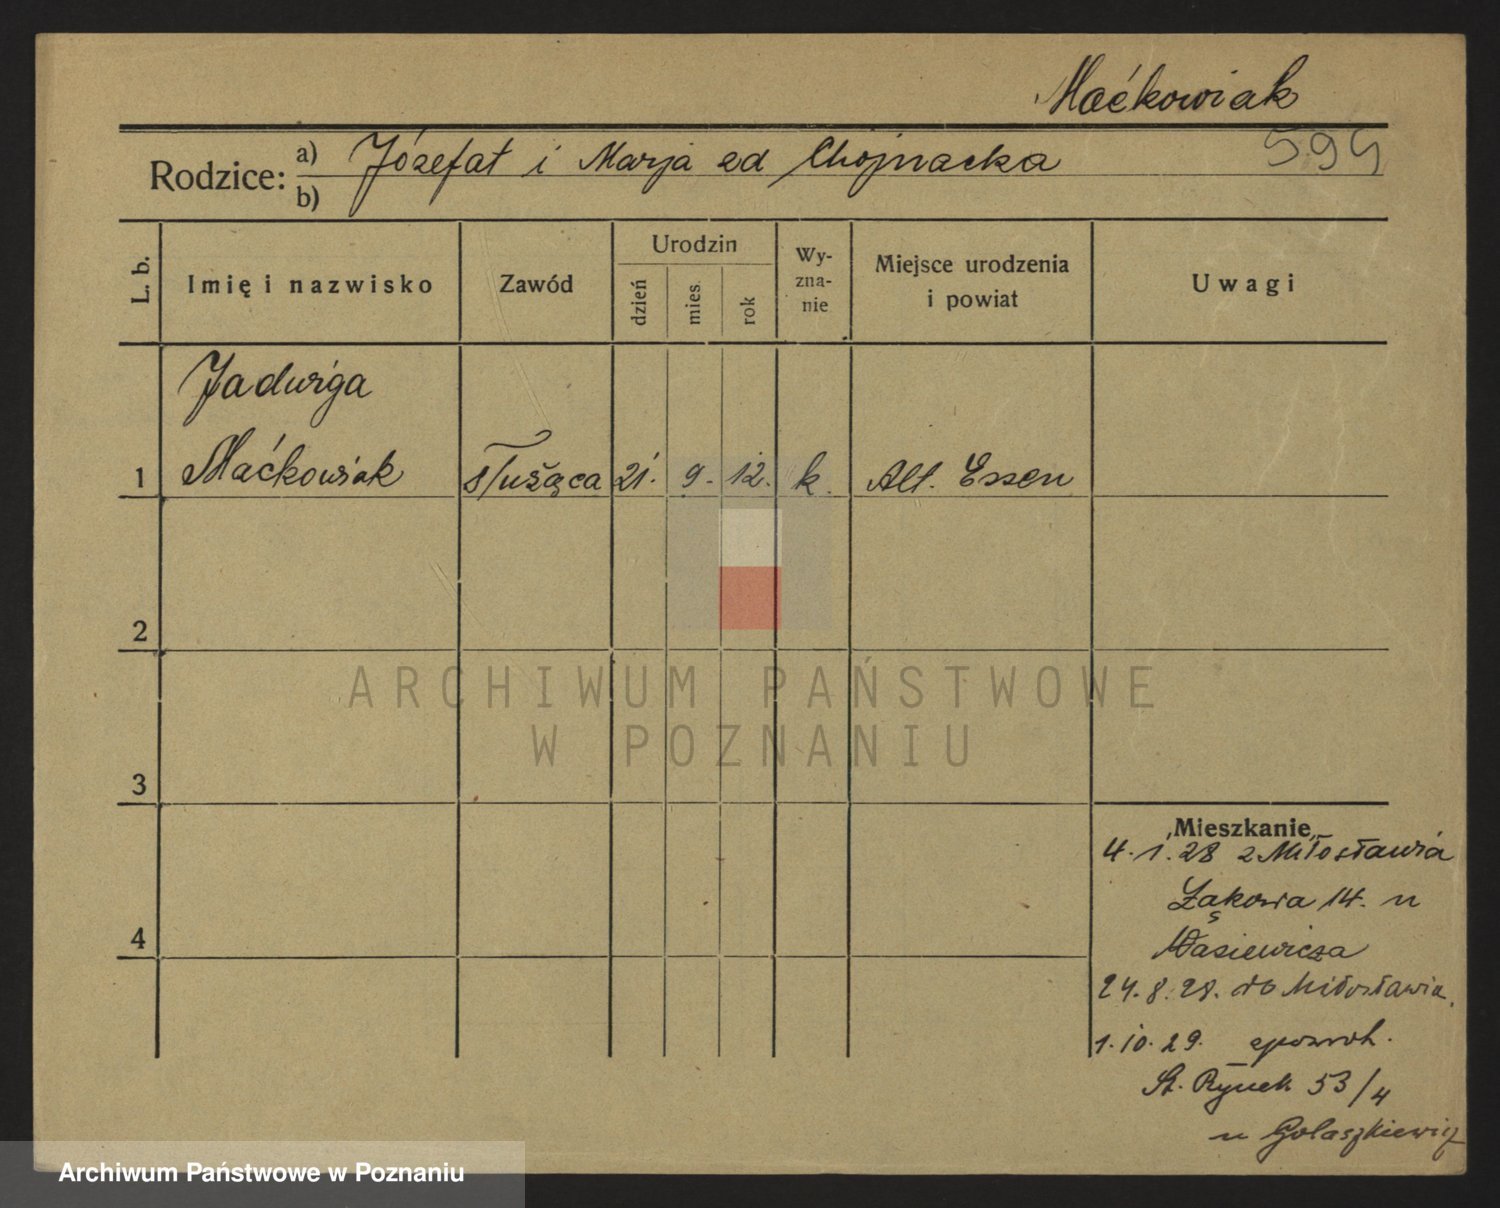 Maćkowiak
594
Rodzice: a) Józefat i Marja zd Chojnacka
b)
L. b.
Imię i nazwisko
Zawód
Urodzin
dzień
mies.
rok
Wy-
zna-
nie
Miejsce urodzenia
i powiat
Uwagi
Jadwiga
1 Maćkowiak służąca 21. 9. 12. k. Alt. Essen
2
ARCHIWUM PAŃSTWOWE
W POZNANIU
3
Mieszkanie
4. 1. 28 z Miłosławia
Łąkowa 14. u
4
Wasiewicza
24. 8. 28. do Miłosławia.
1. 10. 29.
St. Rynek 53/4
u Golaszkiewicz
Archiwum Państwowe w Poznaniu